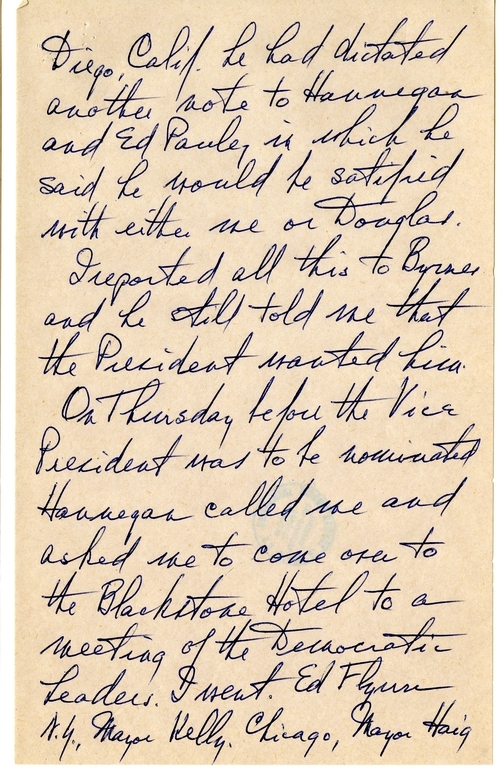 Diego, Calif. he had dictated
another note to Hannegan
and Ed Pauley in which he
said he would be satisfied
with either me or Douglas.
I reported all this to Byrnes
and he still told me that
the President wanted him.
On Thursday before the Vice
President was to be nominated
Hannegan called me and
asked me to come over to
the Blackstone Hotel to a
meeting of the Democratic
Leaders. I went. Ed Flynn
N.Y., Mayor Kelly, Chicago, Mayor Haig